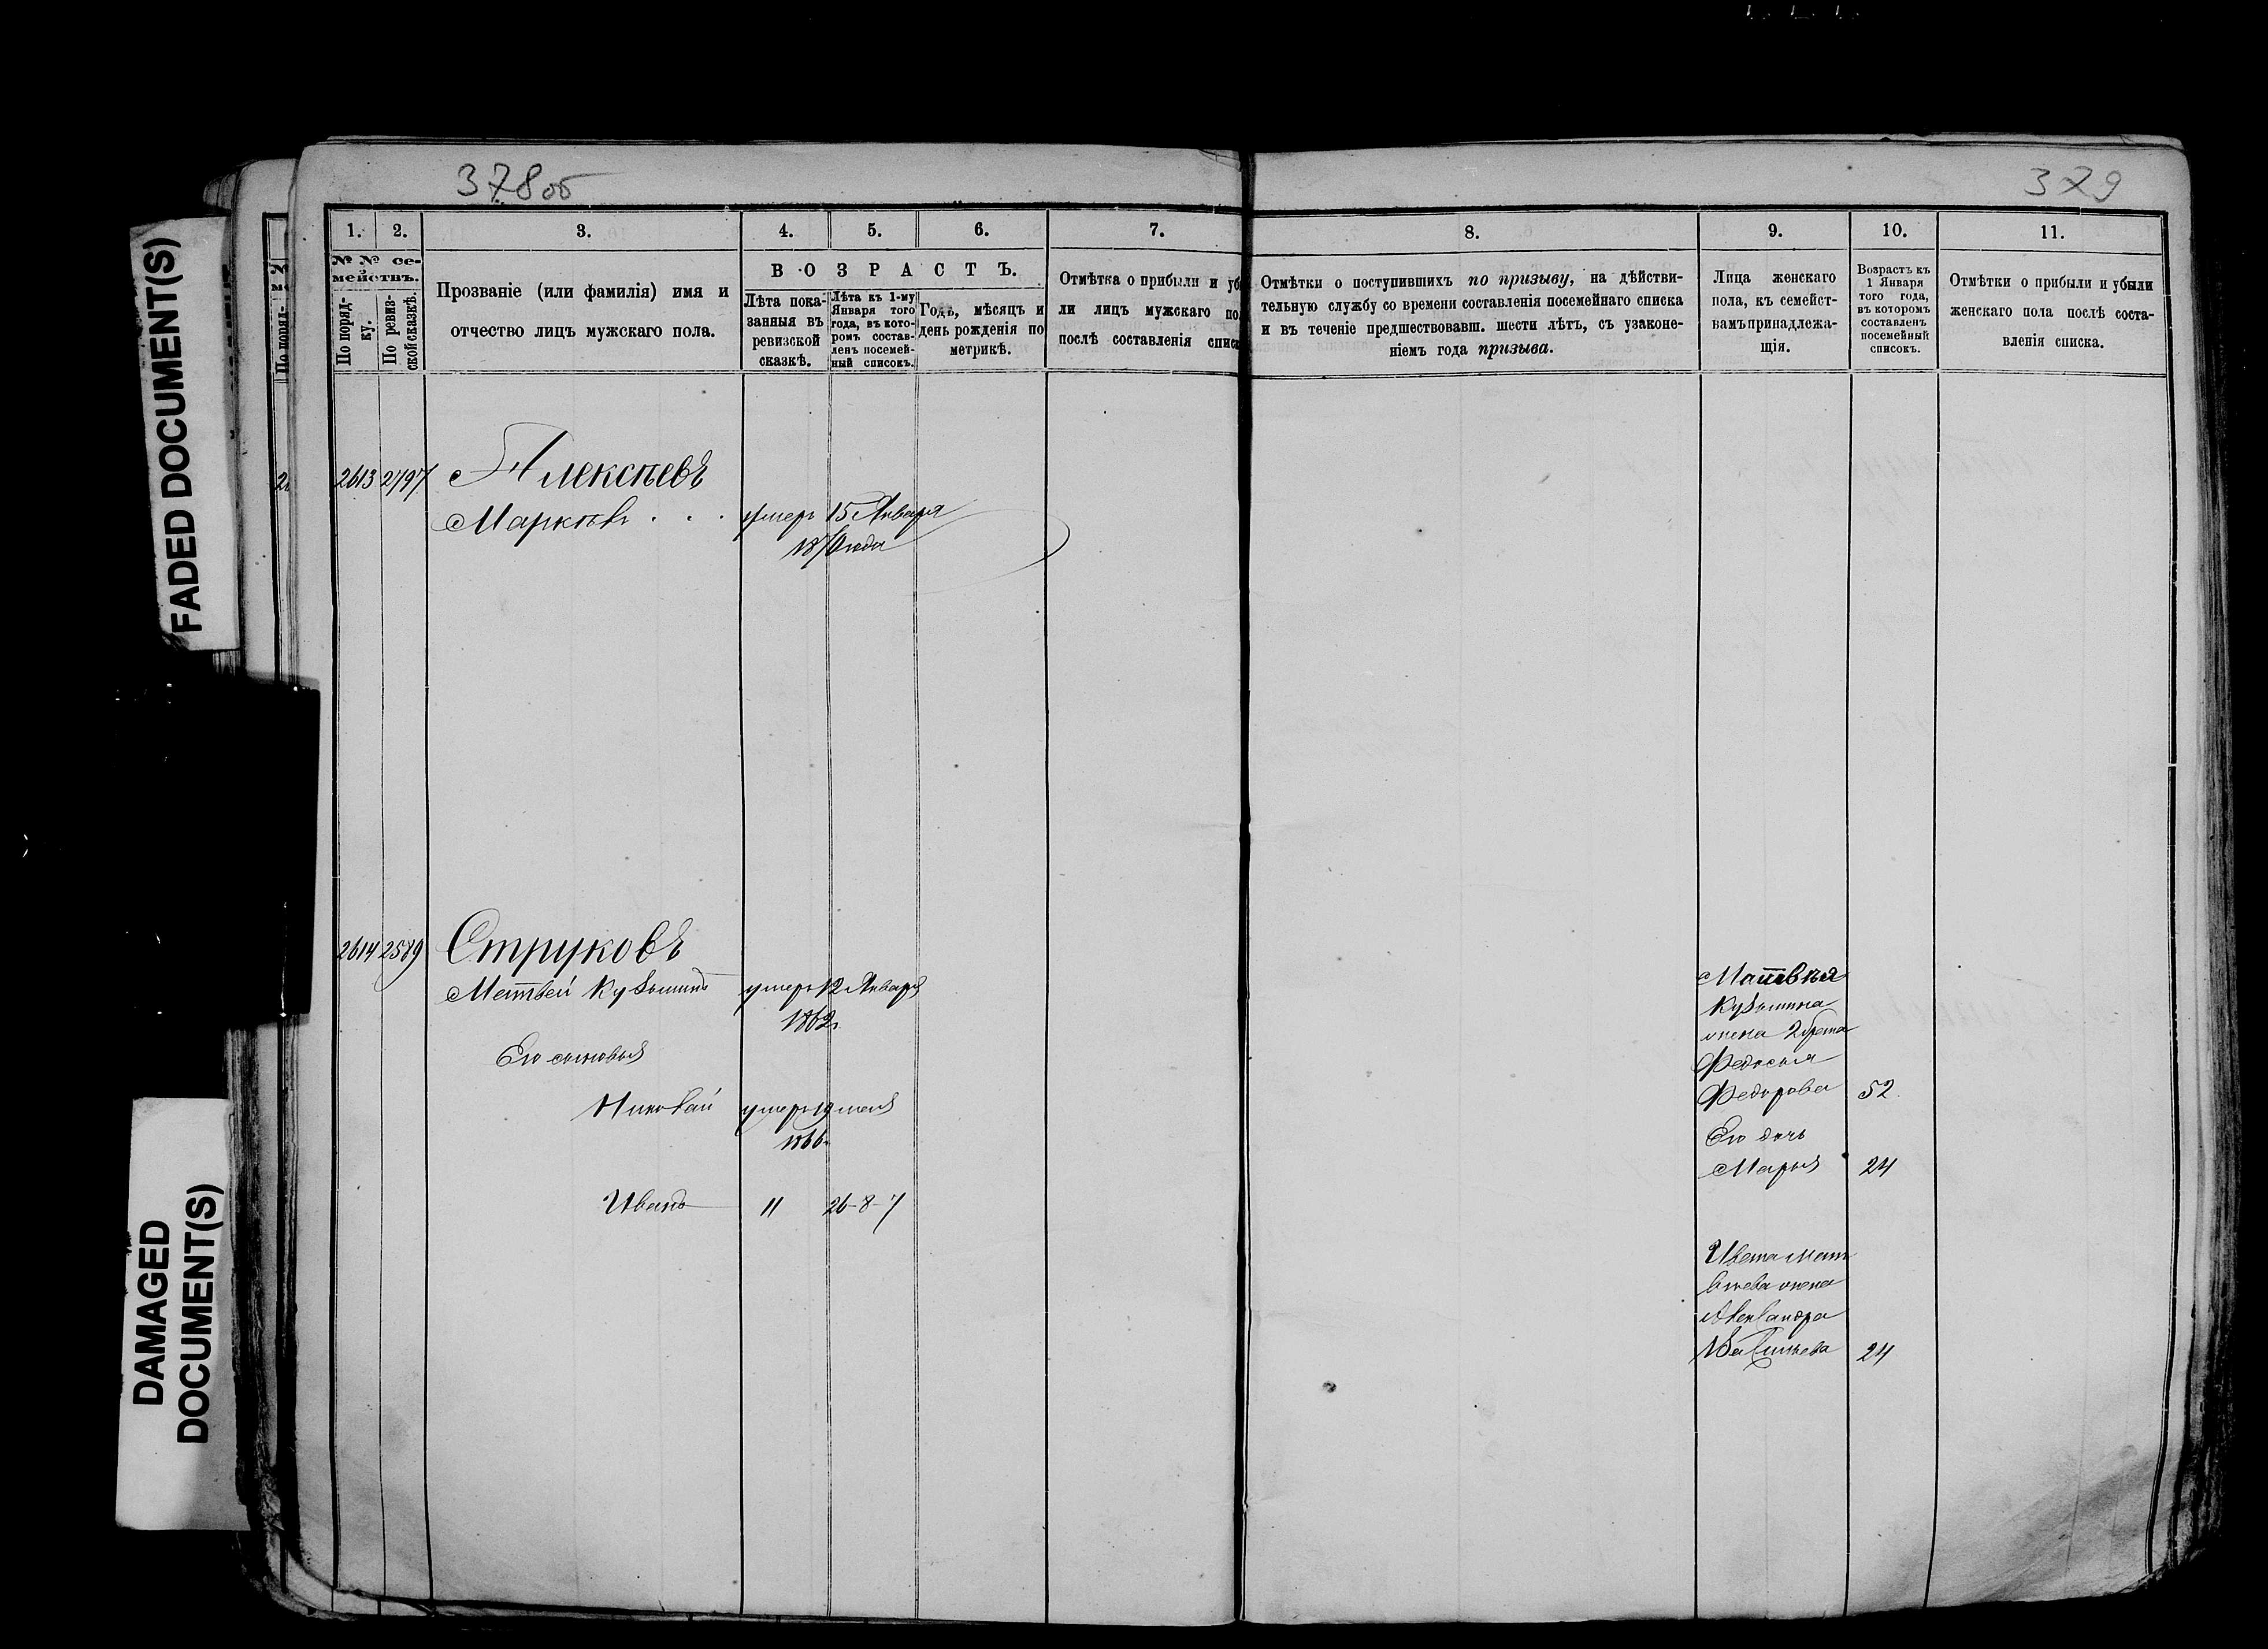 378об
379
FADED DOCUMENT(S)
DAMAGED
DOCUMENT(S)
1. 2. 3. 4. 5. 6. 7. 8. 9. 10. 11.
№ № се-
мействъ.
По поряд-
ку.
По ревиз-
ской сказкѣ.
Прозваніе (или фамилія) имя и
отчество лицъ мужскаго пола.
ВОЗРАСТЪ.
Лѣта пока-
занныя въ
ревизской
сказкѣ.
Лѣта къ 1-му
Января того
года, въ кото-
ромъ состав-
ленъ посемей-
ный списокъ.
Годъ, мѣсяцъ и
день рожденія по
метрикѣ.
Отмѣтка о прибыли и уб
ли лицъ мужскаго по
послѣ составленія спис
Отмѣтки о поступившихъ по призыву, на дѣйстви-
тельную службу со времени составленія посемейнаго списка
и въ теченіе предшествовавш. шести лѣтъ, съ узаконе-
ніемъ года призыва.
Лица женскаго
пола, къ семейст-
вамъ принадлежа-
щія.
Возрастъ къ
1 Января
того года,
въ которомъ
составленъ
посемейный
списокъ.
Отмѣтки о прибыли и убыли
женскаго пола послѣ соста-
вленія списка.
2613 2797 Алексѣевъ
Маркѣвъ . . . умеръ 15 Января
1870 года
2614 2589 Струковъ
Матвѣй Кузьминъ умеръ 12 Января
1862г.
Его сыновья
Николай умеръ 19
1866г
Иванъ 11 26-8-7
Матвѣя
Кузьмина
жена 2 брака
Федосья
Федорова 52
Его дочь
Марья 24
Ивана Мат
вѣева жена
Александра
Васильева 24